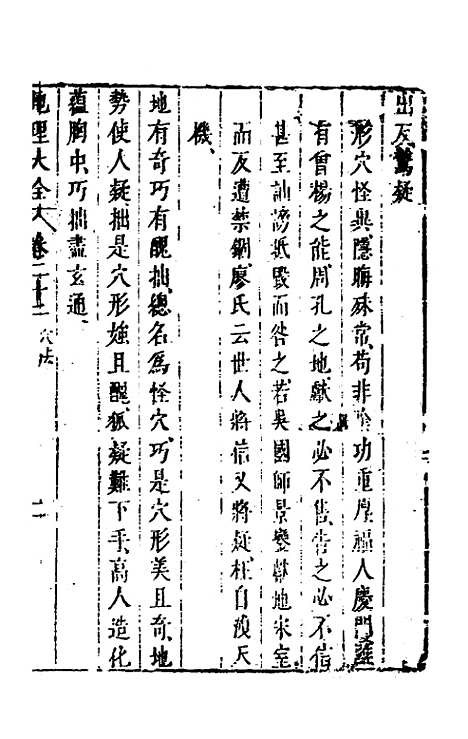 出反驚疑
形穴怪異隱晦殊常苟非陰功重厚福人慶門雖
有曾楊之能周孔之地獻之必不售告之必不信
甚至訕謗抵毀而咎之若吳國師景鸞獻地宋室
而反遭禁錮廖氏云世人將信又將疑枉自洩天
機
地有奇巧有醜拙總名爲怪穴巧是穴形美且奇地
勢使人疑拙是穴形㛐且醜狐疑難下手高人造化
蘊胸中巧拙盡玄通
地理大全 卷二十三 穴法 二